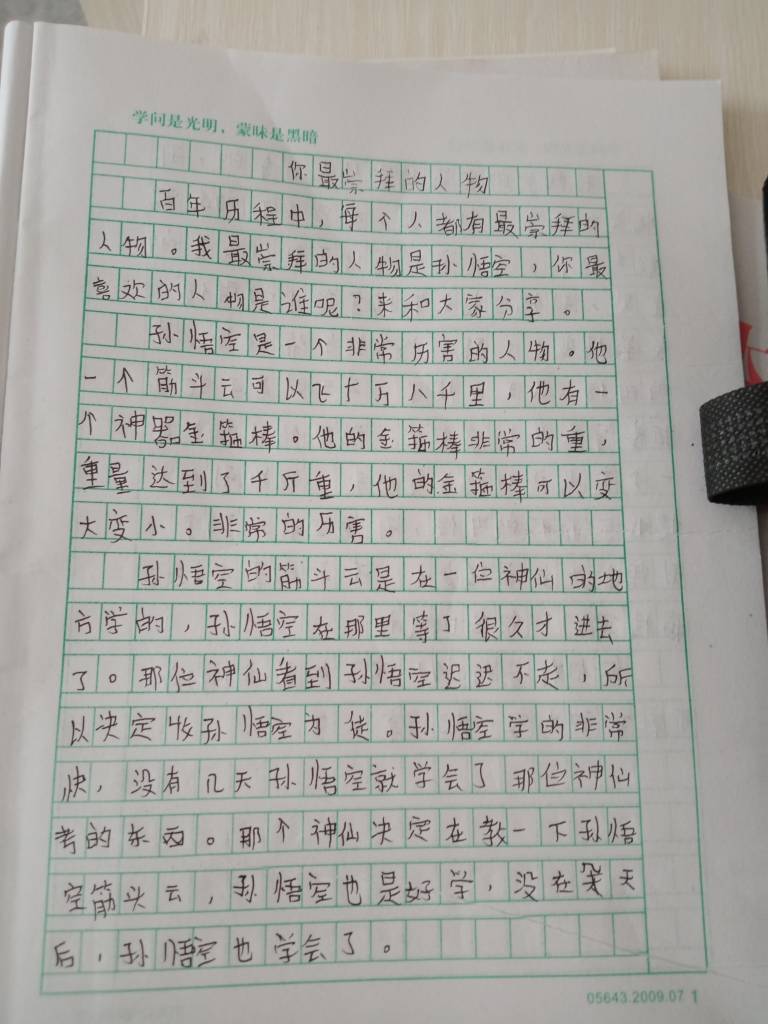 学问是光明，蒙昧是黑暗
你最崇拜的人物
百年历程中，每个人都有最崇拜的
人物。我最崇拜的人物是孙悟空，你最
喜欢的人物是谁呢？来和大家分享。
孙悟空是一个非常历害的人物。他
一个筋斗云可以飞十万八千里，他有一
个神器金箍棒。他的金箍棒非常的重，
重量达到了千斤重，他的金箍棒可以变
大变小。非常的历害。
孙悟空的筋斗云是在一位神仙的地
方学的，孙悟空在那里等了很久才进去
了。那位神仙看到孙悟空迟迟不走，所
以决定收孙悟空为徒。孙悟空学的非常
快，没有几天孙悟空就学会了那位神仙
考的东西。那个神仙决定在教一下孙悟
空筋头云，孙悟空也是好学，没在天
后，孙悟空也学会了。
05643.2009.07 1